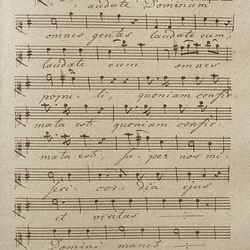 audate Dominum
omnes gentes laudate eum,
laudate eum omnes
popu- li, quoniam confir
mata est quoniam confir-
mata est, su- per nos mi-
seri cor- dia ejus
et veritas
Domini manet